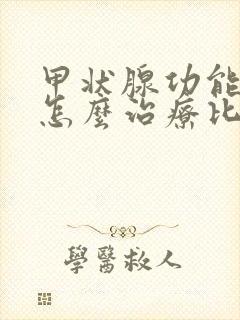 甲状腺功能
怎麼治療比
學醫救人